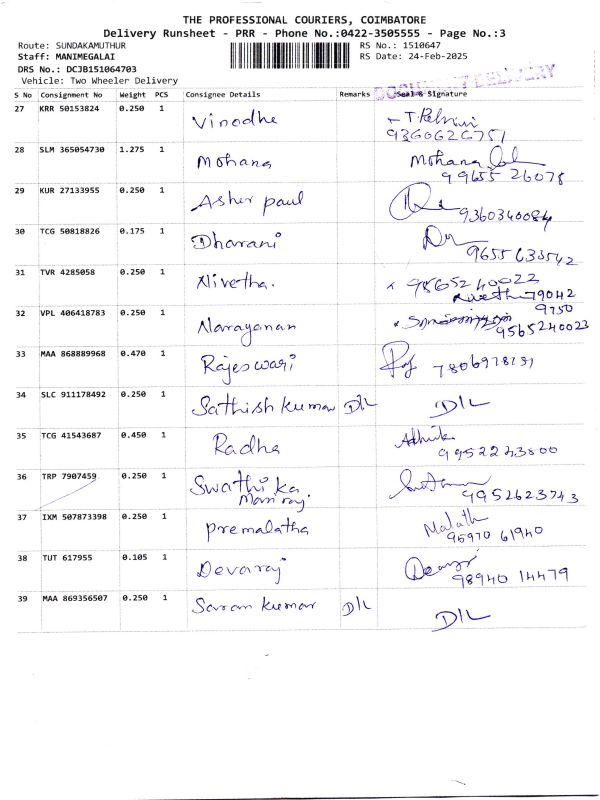 THE PROFESSIONAL COURIERS, COIMBATORE
Delivery Runsheet - PRR - Phone No.:0422-3505555 - Page No.:3
Route: SUNDAKAMUTHUR RS No.: 1510647
Staff: MANIMEGALAI RS Date: 24-Feb-2025
DRS No.: DCJB151064703
Vehicle: Two Wheeler Delivery
DOCUMENT DELIVERY
S No Consignment No Weight PCS Consignee Details Remarks Seal & Signature
27 KRR 50153824 0.250 1 Vinodhe
9360626751
28 SLM 365054730 1.275 1 Mohana Mohana
99655 26078
29 KUR 27133955 0.250 1 Asher paul 9360340084
30 TCG 50818826 0.175 1 Dharani 9655633542
31 TVR 4285058 0.250 1 Nivetha. 9865240022
79042
9750
32 VPL 406418783 0.250 1 Narayanan 9565240023
33 MAA 868889968 0.470 1 Rajeswari
34 SLC 911178492 0.250 1 Sathish kumar D/L D/L
35 TCG 41543687 0.450 1 Radha
9952243800
36 TRP 7907459 0.250 1 Swathi ka
Mani raj. 9952623743
37 IXM 507873398 0.250 1 premalatha Malath
95970 61940
38 TUT 617955 0.105 1 Devaraj
98940 14479
39 MAA 869356507 0.250 1 Saran kumar D/L D/L